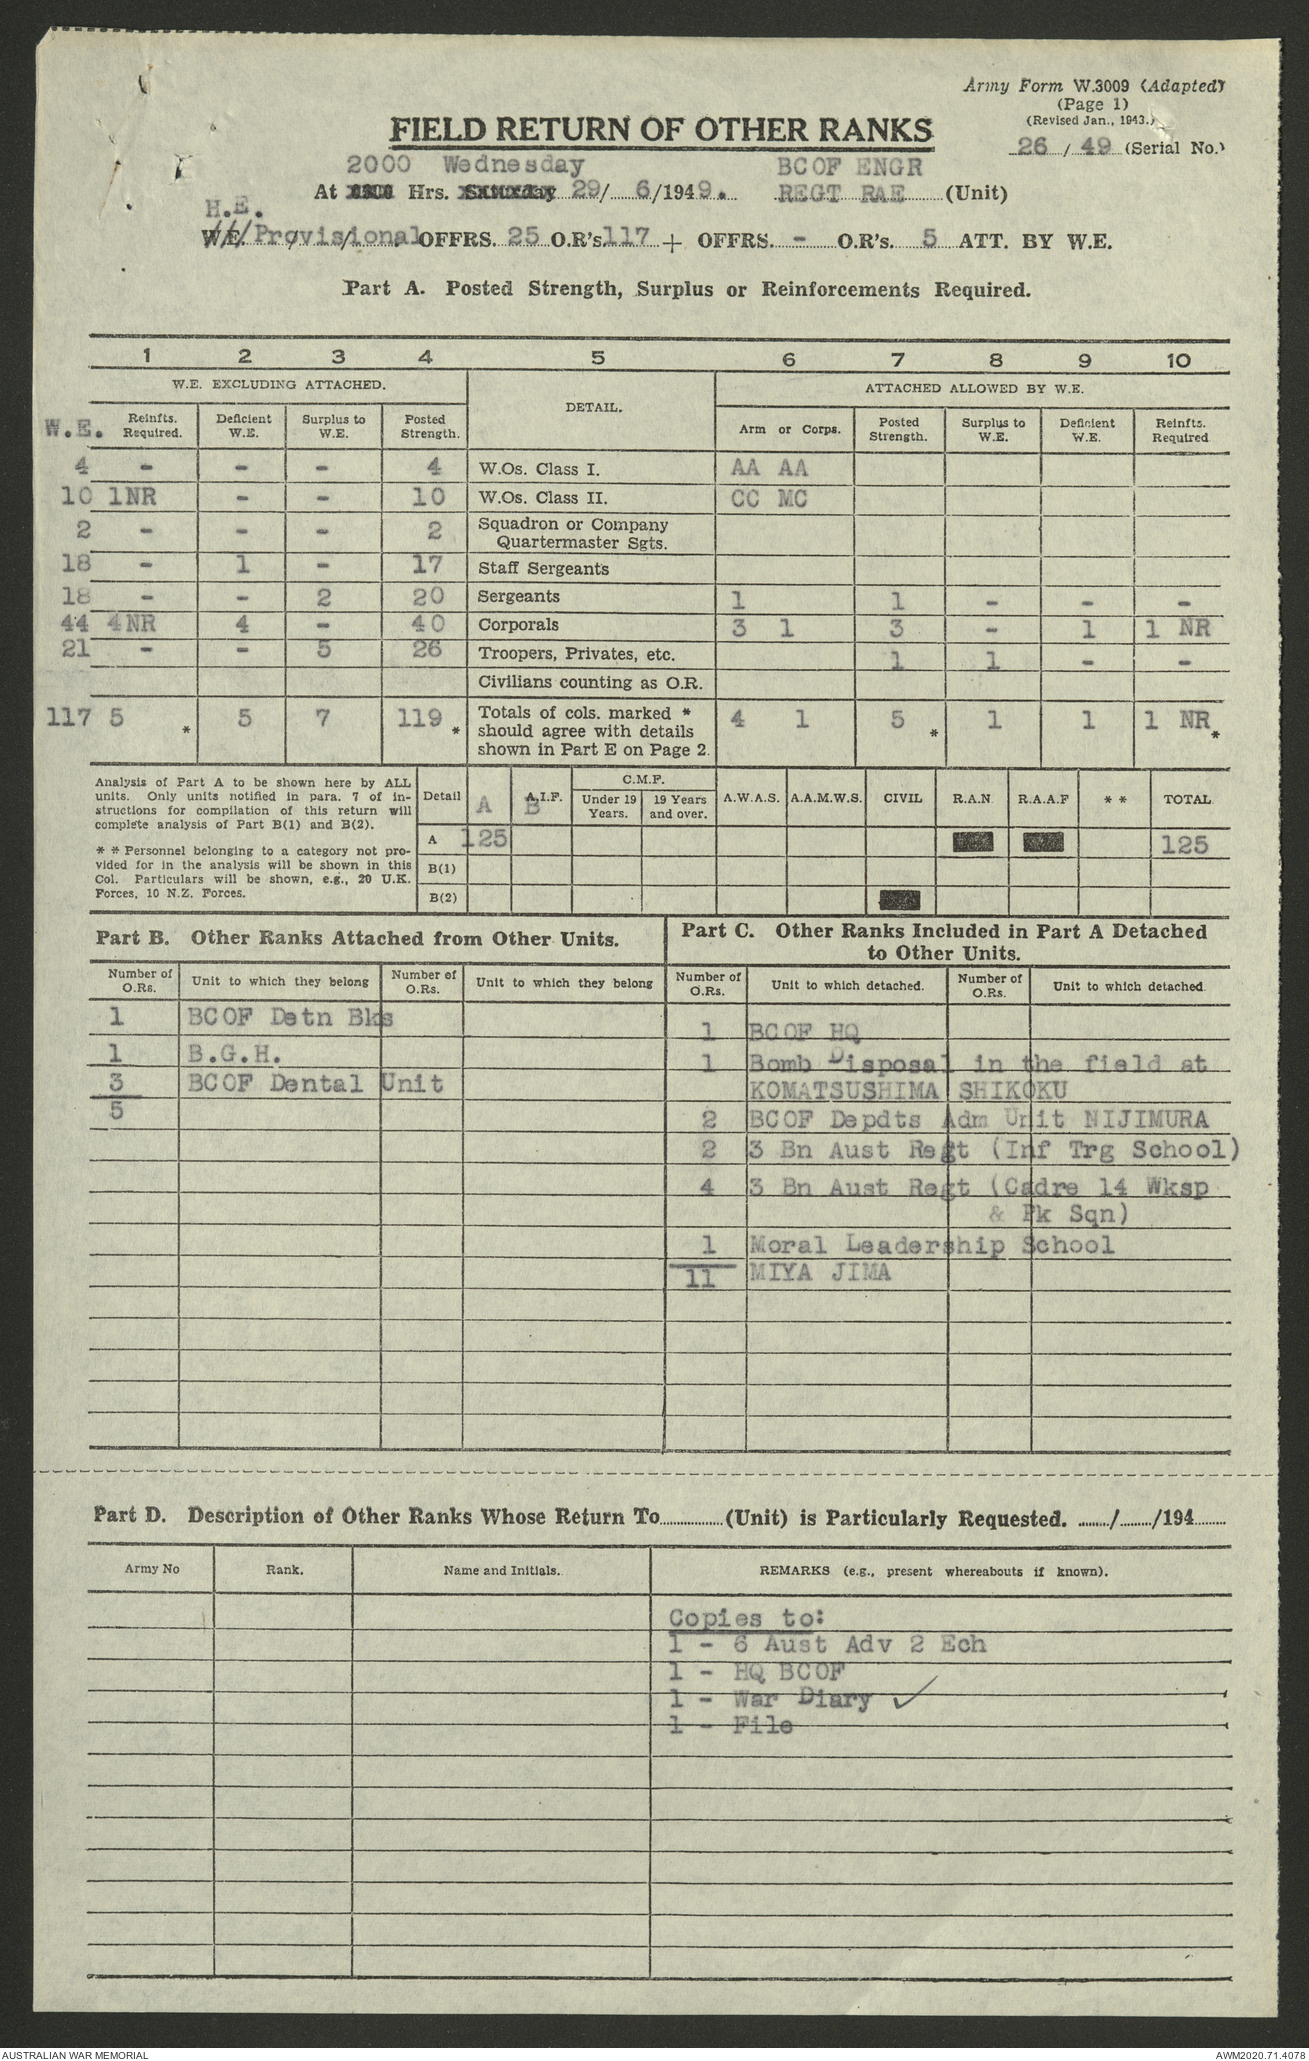 Army Form W.3009 (Adapted)
(Page 1)
(Revised Jan., 1943.)
FIELD RETURN OF OTHER RANKS
26 / 49 (Serial No.)
2000 Wednesday BCOF ENGR
At Hrs. Saturday 29/ 6/1949. REGT RAE (Unit)
H.E.
W.E. Provisional OFFRS. 25 O.R's 117 + OFFRS. - O.R's. 5 ATT. BY W.E.
Part A. Posted Strength, Surplus or Reinforcements Required.
1 2 3 4 5 6 7 8 9 10
W.E. EXCLUDING ATTACHED. DETAIL. ATTACHED ALLOWED BY W.E.
W.E. Reinfts. Required. Deficient W.E. Surplus to W.E. Posted Strength. Arm or Corps. Posted Strength. Surplus to W.E. Deficient W.E. Reinfts. Required
4 - - - 4 W.Os. Class I. AA AA
10 1NR - - 10 W.Os. Class II. CC MC
2 - - - 2 Squadron or Company
Quartermaster Sgts.
18 - 1 - 17 Staff Sergeants
18 - - 2 20 Sergeants 1 1 - - -
44 4NR 4 - 40 Corporals 3 1 3 - 1 1 NR
21 - - 5 26 Troopers, Privates, etc. 1 1 - -
Civilians counting as O.R.
117 5 * 5 7 119 * Totals of cols. marked * 4 1 5 * 1 1 1 NR *
should agree with details
shown in Part E on Page 2.
Analysis of Part A to be shown here by ALL
units. Only units notified in para. 7 of in-
structions for compilation of this return will
complete analysis of Part B(1) and B(2).
* * Personnel belonging to a category not pro-
vided for in the analysis will be shown in this
Col. Particulars will be shown, e.g., 20 U.K.
Forces, 10 N.Z. Forces.
C.M.F.
Detail A A.I.F. B Under 19 Years. 19 Years and over. A.W.A.S. A.A.M.W.S. CIVIL R.A.N. R.A.A.F * * TOTAL
A 125 125
B(1)
B(2)
Part B. Other Ranks Attached from Other Units.
Number of O.Rs. Unit to which they belong Number of O.Rs. Unit to which they belong
1 BCOF Detn Bks
1 B.G.H.
3 BCOF Dental Unit
5
Part C. Other Ranks Included in Part A Detached
to Other Units.
Number of O.Rs. Unit to which detached. Number of O.Rs. Unit to which detached.
1 BCOF HQ
1 Bomb Disposal in the field at
KOMATSUSHIMA SHIKOKU
2 BCOF Depdts Adm Unit NIJIMURA
2 3 Bn Aust Regt (Inf Trg School)
4 3 Bn Aust Regt (Cadre 14 Wksp
& Pk Sqn)
1 Moral Leadership School
11 MIYA JIMA
Part D. Description of Other Ranks Whose Return To (Unit) is Particularly Requested. / /194
Army No Rank. Name and Initials. REMARKS (e.g., present whereabouts if known).
Copies to:
1 - 6 Aust Adv 2 Ech
1 - HQ BCOF
1 - War Diary ✓
1 - File
AUSTRALIAN WAR MEMORIAL AWM2020.71.4078